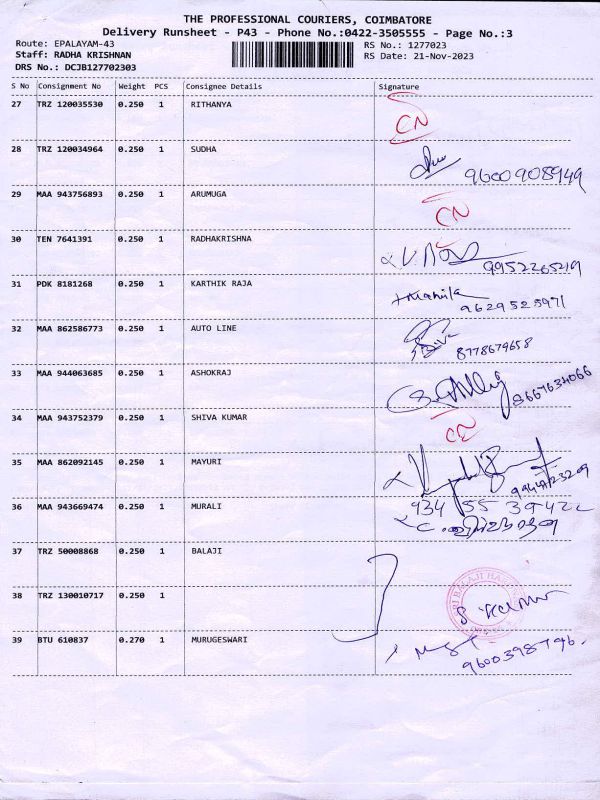 THE PROFESSIONAL COURIERS, COIMBATORE
Delivery Runsheet - P43 - Phone No.:0422-3505555 - Page No.:3
Route: EPALAYAM-43 RS No.: 1277023
Staff: RADHA KRISHNAN RS Date: 21-Nov-2023
DRS No.: DCJB127702303
S No Consignment No Weight PCS Consignee Details Signature
27 TRZ 120035530 0.250 1 RITHANYA CN
28 TRZ 120034964 0.250 1 SUDHA
9600908949
29 MAA 943756893 0.250 1 ARUMUGA CN
30 TEN 7641391 0.250 1 RADHAKRISHNA
9952265219
31 PDK 8181268 0.250 1 KARTHIK RAJA
9629525971
32 MAA 862586773 0.250 1 AUTO LINE
8778679658
33 MAA 944063685 0.250 1 ASHOKRAJ
8667634066
34 MAA 943752379 0.250 1 SHIVA KUMAR CN
35 MAA 862092145 0.250 1 MAYURI
36 MAA 943669474 0.250 1 MURALI
37 TRZ 50008868 0.250 1 BALAJI
38 TRZ 130010717 0.250 1
39 BTU 610837 0.270 1 MURUGESWARI
9600398796